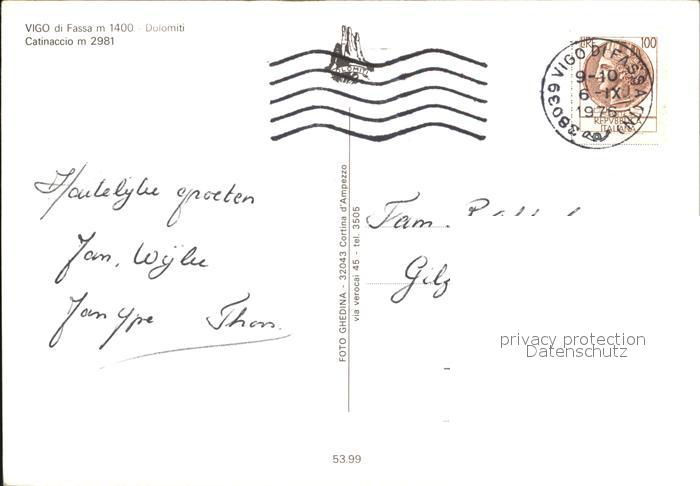 VIGO di Fassa m 1400 - Dolomiti
Catinaccio m 2981
LIRE 100
38039 VIGO DI FASSA (TN)
9-10
6-IX
1976
REPVBBLICA
ITALIANA
DOLOMITI
Hartelijke groeten
Jan, Wijke
Jan Ype Thom.
FOTO GHEDINA - 32043 Cortina d'Ampezzo
via verocai 45 - tel. 3505
Fam.
Gilz
privacy protection
Datenschutz
53.99